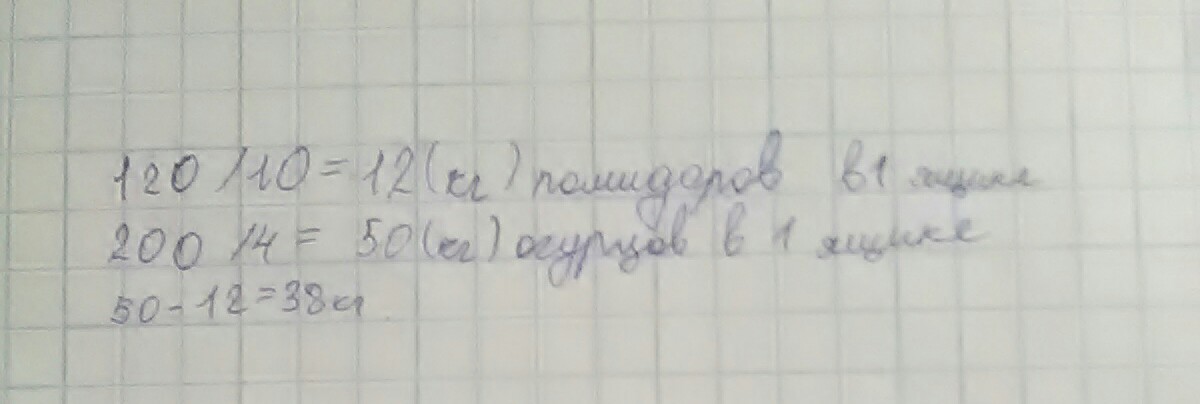 120 /10 = 12 (кг) помидоров в 1 ящике
200 /4 = 50 (кг) огурцов в 1 ящике
50 - 12 = 38 кг